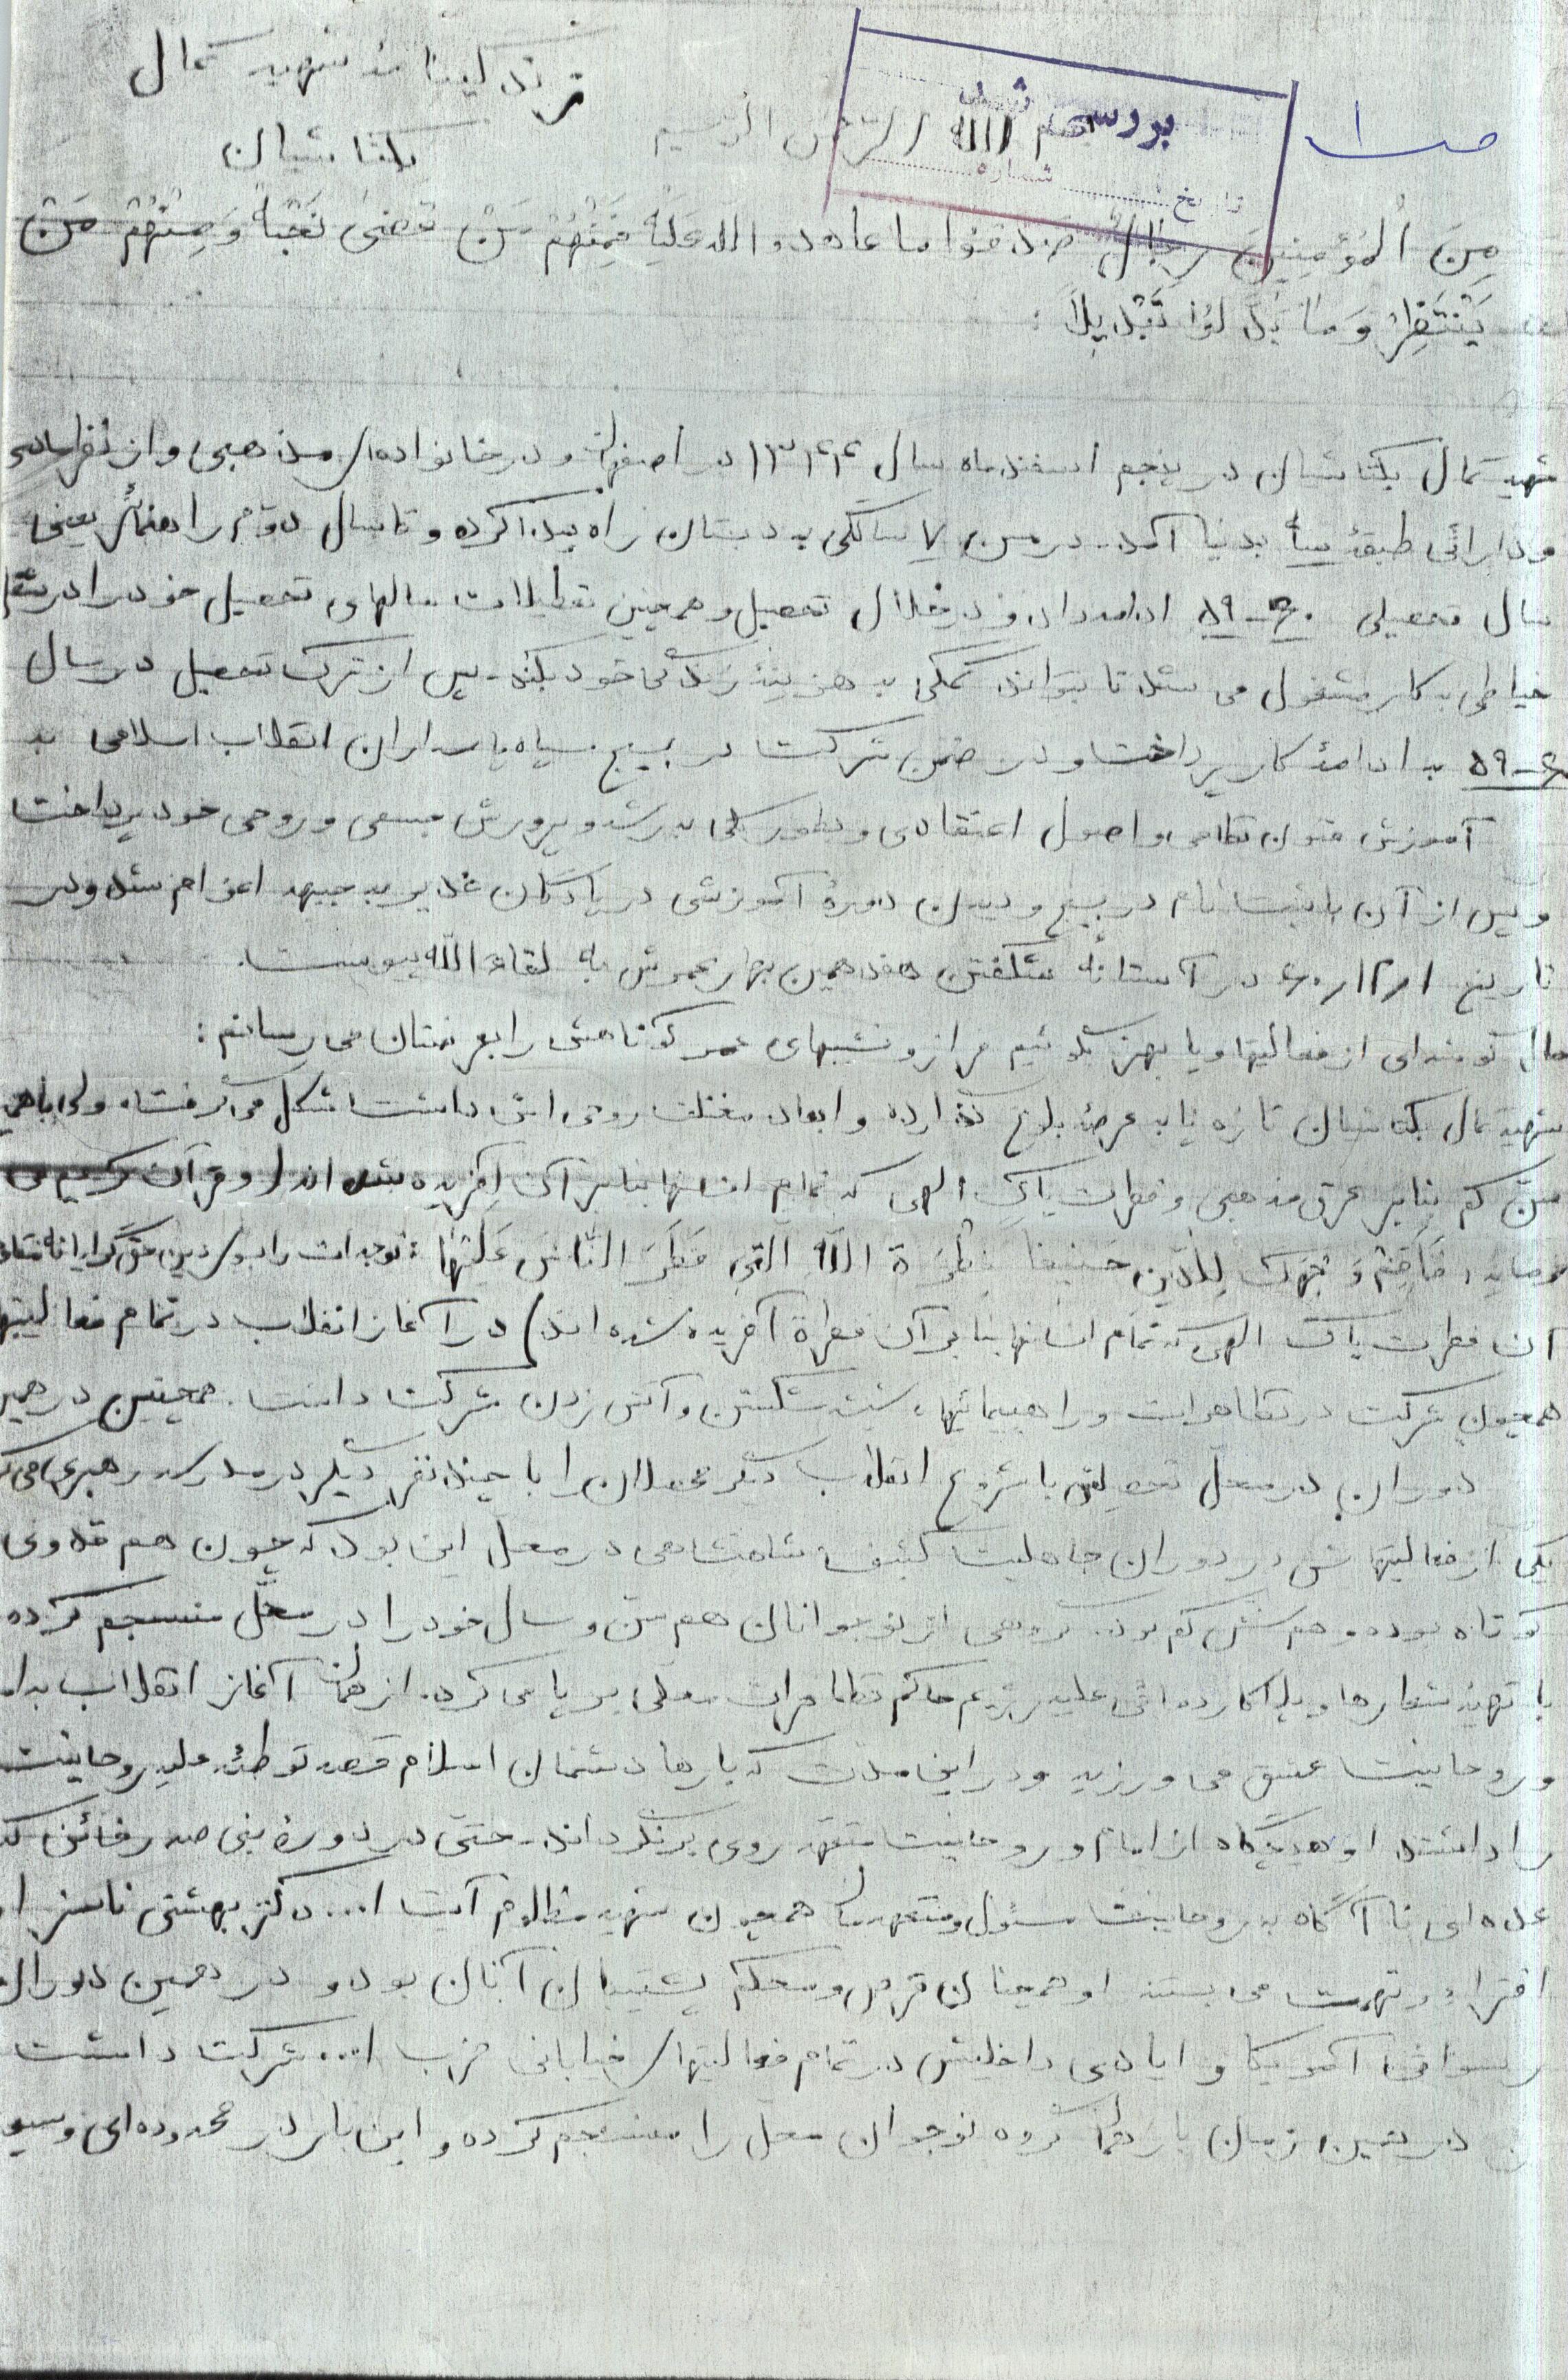 زندگینامه شهید کمال
بکتاشیان
ص ۱
بررسی شد
شماره
تاریخ
بسم الله الرحمن الرحیم
مِنَ اُلمُؤمِنینَ رِجالٌ صَدَقوا ما عاهدو اللهَ عَلَیهِ فَمِنْهُمْ مَنْ قَضیٰ نَحْبَهُ وَ مِنْهُمْ مَنْ
یَنْتَظِرُ وَ مٰا بَدَّلوُا تَبْدیِلاً :
شهید کمال بکتاشیان در پنجم اسفندماه سال ۱۳۴۴ در اصفهان و در خانواده‌ای مذهبی و از نظر
و دارائی طبقهٔ بدنیا آمد. در سن ۷ سالگی به دبستان راه پیدا کرده و تا سال دوّم راهنمائی یعنی
سال تحصیلی ۶۰-۵۹ ادامه داد و در خلال تحصیل و همچنین تعطیلات سالهای تحصیل خود را در
خیاطی به کار مشغول می شد تا بتواند کمکی به هزینهٔ زندگی خود بکند. پس از ترک تحصیل در سال
۶۰-۵۹ به ادامهٔ کار پرداخت و در ضمن شرکت در بسیج سپاه پاسداران انقلاب اسلامی به
آموزش فنون نظامی و اصول اعتقادی و بطور کلی به رشد و پرورش جسمی و روحی خود پرداخت
و پس از آن با ثبت نام در بسیج و دیدن دورهٔ آموزشی در پادگان غدیر به جبهه اعزام شد و در
تاریخ ۶۰/۱۲/۱ در آستانهٔ شکفتن هفدهمین بهار عمرش به لقاءالله پیوست.
حال گوشه‌ای از فعالیتها و یا بهتر بگوئیم فراز و نشیبهای عمر کوتاهش را بعرضتان می رسانم :
شهید کمال بکتاشیان تازه پا به عرصهٔ بلوغ گذارده و ابعاد مختلف روحی اش داشت شکل می گرفت، ولی با همین
سنّ کم بنابر عرق مذهبی و فطرت پاک الهی که تمام انسانها بنابر آن آفریده شده اند (و قرآن کریم می
فرماید، فَاَقِمْ وَجْهَکَ لِلدّینِ حَنیفاً فِطْرَةَ اللهِ الَّتی فَطَرَ النّاسَ عَلَیْهٰا : توجهات را بسوی دین حق گرایانه
آن فطرت پاک الهی که تمام انسانها بنابر آن فطرة آفریده شده اند) در آغاز انقلاب در تمام فعالیتها
همچون شرکت در تظاهرات و راهپیمائیها، شکستن و آتش زدن شرکت داشت. همچنین در همین
دوران در محلّ تحصیلش با شروع انقلاب دیگر محصلان را با چند نفر دیگر در مدرسه رهبری می
یکی از فعالیتهایش در دوران جاهلیت کثیف شاهنشاهی در محل این بود که چون هم قد وی
کوتاه بوده و هم سنش کم بود. گروهی از نوجوانان هم سن و سال خود را در محّل منسجم کرده
با تهیهٔ شعارها و پلاکاردهائی علیه رژیم حاکم تظاهرات محلی بر پا می کرد. از همان آغاز انقلاب
و روحانیت عشق می ورزید و در این مدت که بارها دشمنان اسلام قصد توطئه علیه روحانیت
را داشتند او هیچگاه از امام و روحانیت متعهد روی برنگرداند. حتی در دورهٔ بنی صدر خائن که
عده‌ای ناآگاه به روحانیت مسئول و متعهد همچون شهید مظلوم آیت ا... دکتر بهشتی ناسزا
افترا و تهمت می بستند او همچنان قرص و محکم پشتیبان آنان بود و در همین دوران
رسوائی آمریکا و ایادی داخلیش در تمام فعالیتهای خیابانی حزب ا... شرکت داشت
در همین زمان باز همان گروه نوجوان محل را منسجم کرده و این بار در محدوده‌ای